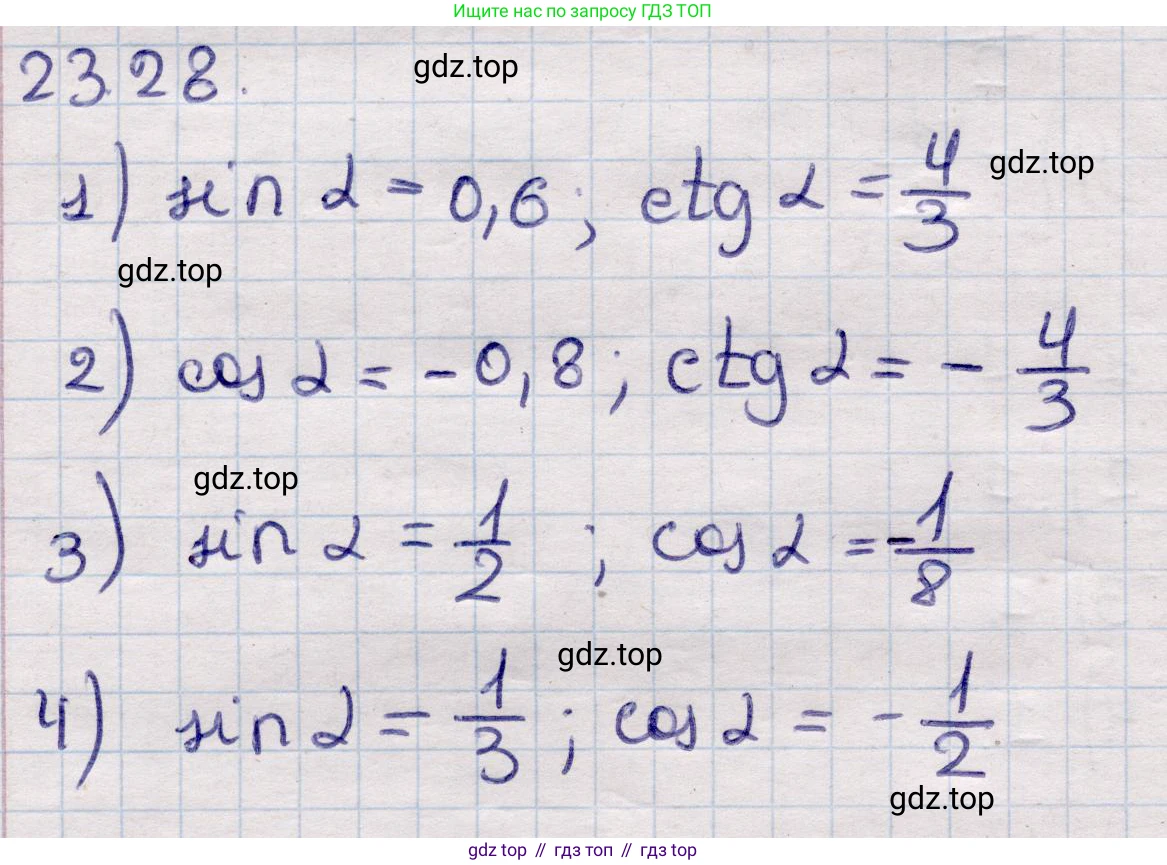 Ищите нас по запросу ГДЗ ТОП
23.28.
gdz.top
1) sin α = 0,6; ctg α = 4/3
gdz.top
gdz.top
2) cos α = -0,8; ctg α = - 4/3
gdz.top
3) sin α = 1/2 ; cos α = -1/8
gdz.top
4) sin α = 1/3 ; cos α = - 1/2
gdz.top
gdz top // гдз топ // гдз top